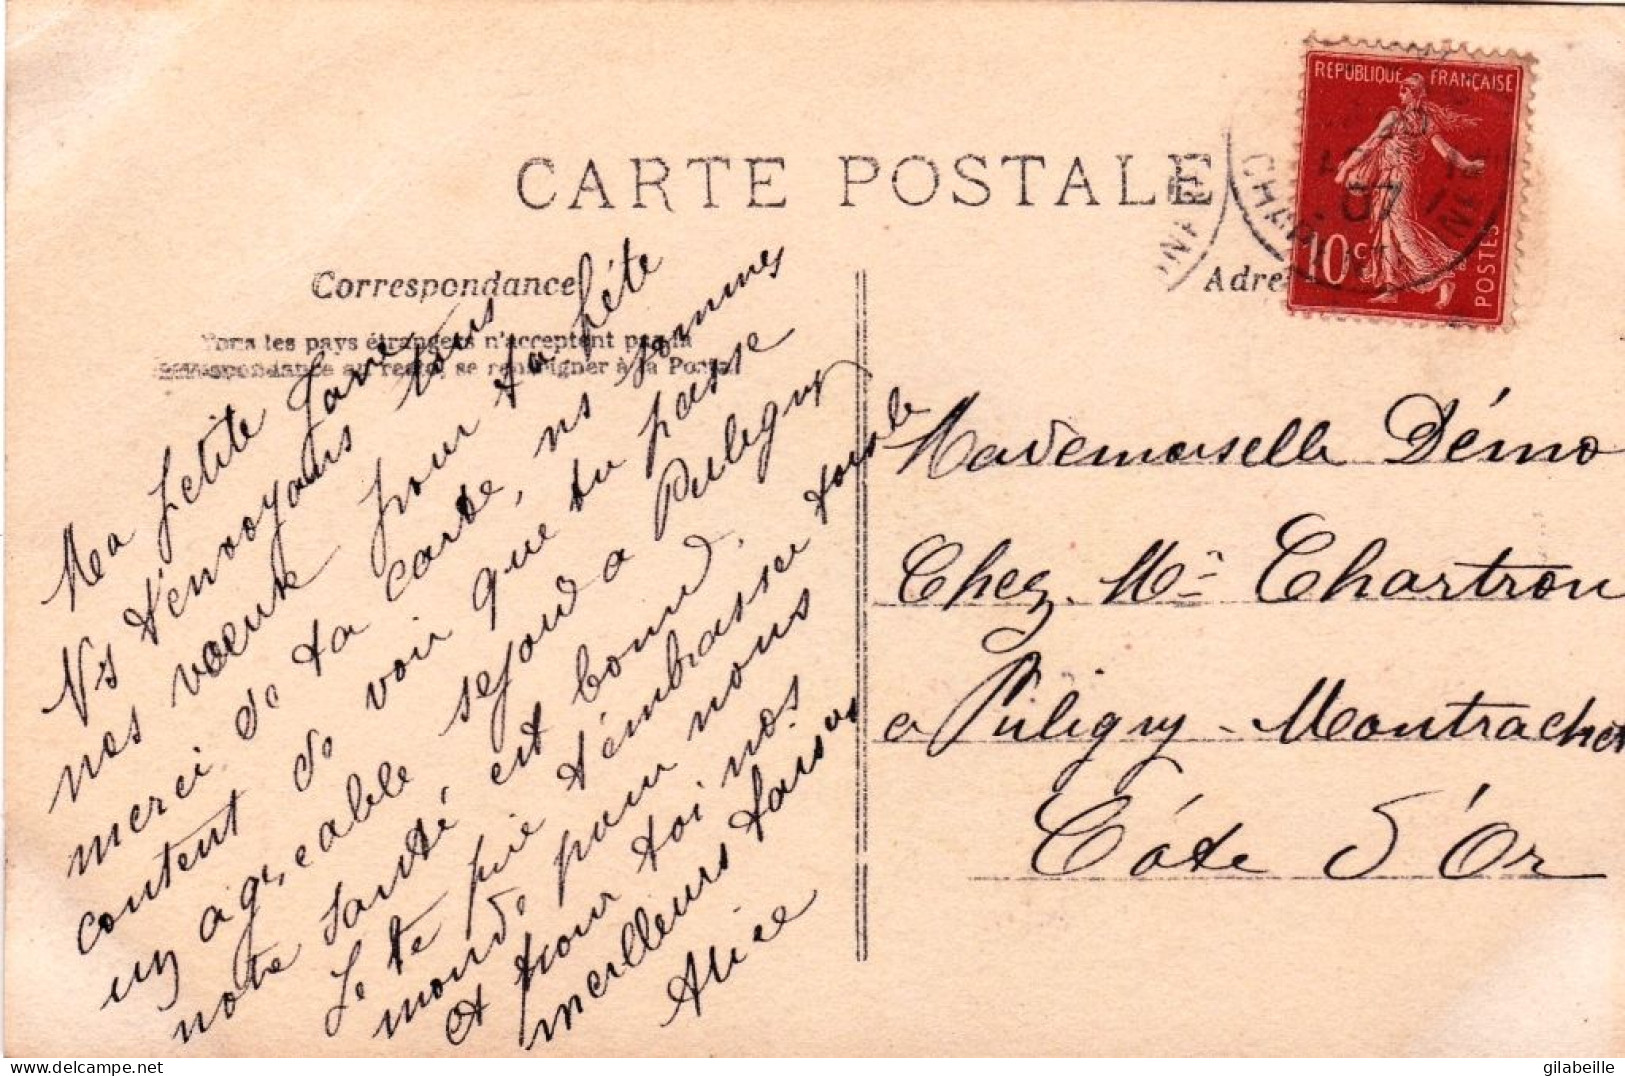 CARTE POSTALE
RÉPUBLIQUE FRANÇAISE
10c
POSTES
07
Correspondance
Adre
Tous les pays étrangers n'acceptent pas la
correspondance au recto, se renseigner à la Poste
Ma petite
Ns t'envoyons tous
nos vœux pour ta fête
merci de ta carte, ns sommes
content de voir que tu passe
un agréable sejour a Puligny
notre santé est bonne,
Je te prie d'embrasser tout le
monde pour nous
et pour toi nos
meilleurs baisers
Alice
Mademoiselle Démo
Chez Mr Chartron
a Puligny-Montrachet
Côte d'Or
gilabeille